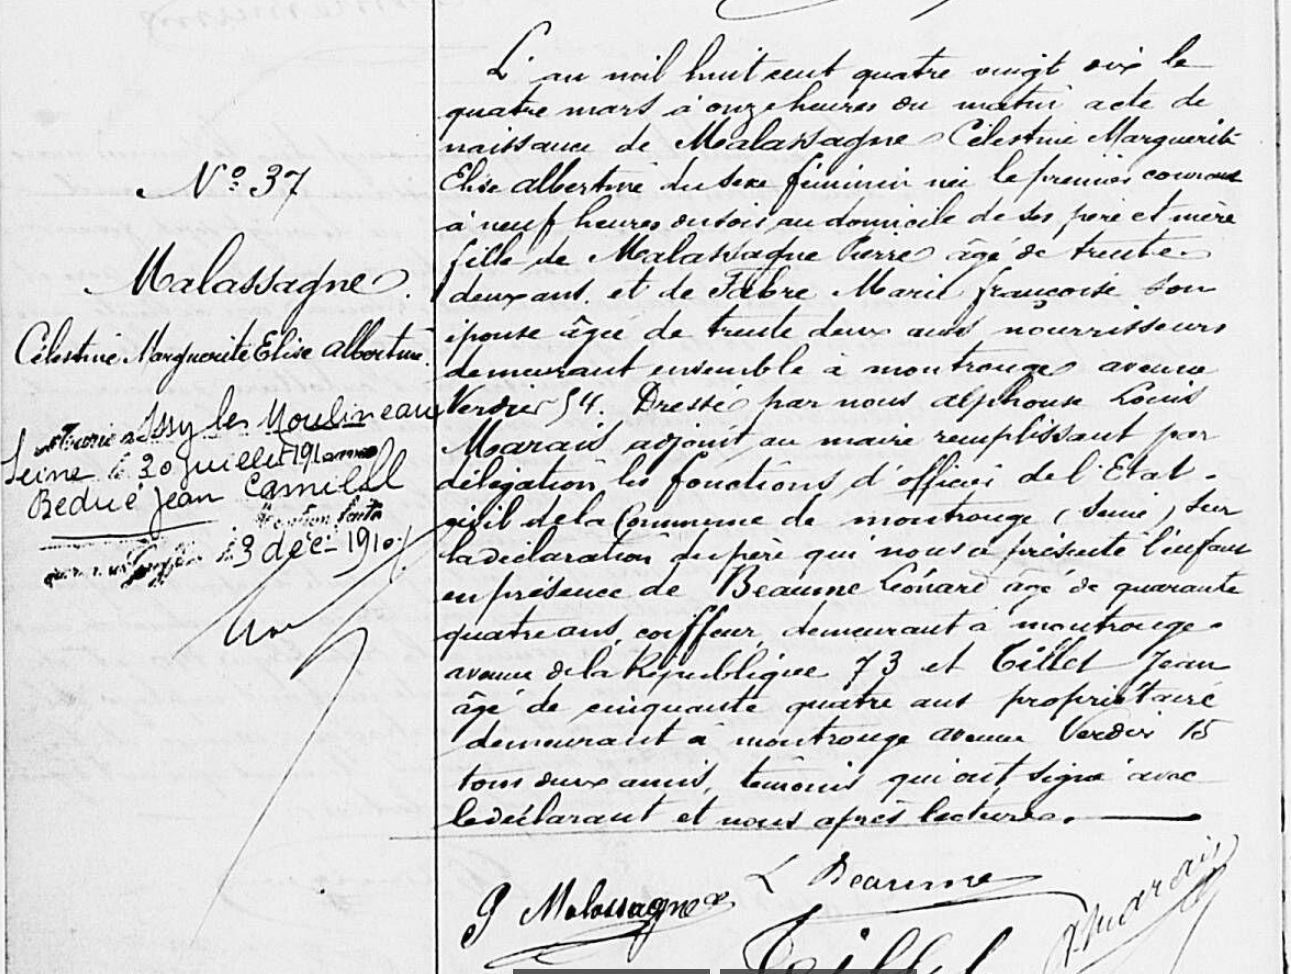 N° 37
Malassagne.
Célestine Marguerite Elise Albertine.
Mariée à Issy les Moulineaux
Seine le 30 juillet 1910 avec
Bedué Jean Camille
Mention faite
le 3 déc. 1910
L'an mil huit cent quatre vingt dix le
quatre mars à onze heures du matin acte de
naissance de Malassagne Célestine Marguerite
Elise Albertine du sexe féminin née le premier courant
à neuf heures du soir au domicile de ses père et mère
fille de Malassagne Pierre âgé de trente
deux ans. et de Fabre Marie françoise son
épouse âgée de trente deux ans nourrisseurs
demeurant ensemble à montrouge avenue
Verdier 54. Dressé par nous Alphonse Louis
Marais adjoint au maire remplissant par
délégation les fonctions d'officier de l'Etat
civil de la Commune de montrouge (Seine) sur
la déclaration du père qui nous a présenté l'enfant
en présence de Beaume Léonard âgé de quarante
quatre ans, coiffeur demeurant à montrouge
avenue de la République 73 et Tillet Jean
âgé de cinquante quatre ans propriétaire
demeurant à montrouge avenue Verdier 15
tous deux amis, témoins qui ont signé avec
le déclarant et nous après lecture.
L Beaume
P Malassagne
A Marais
Tillet